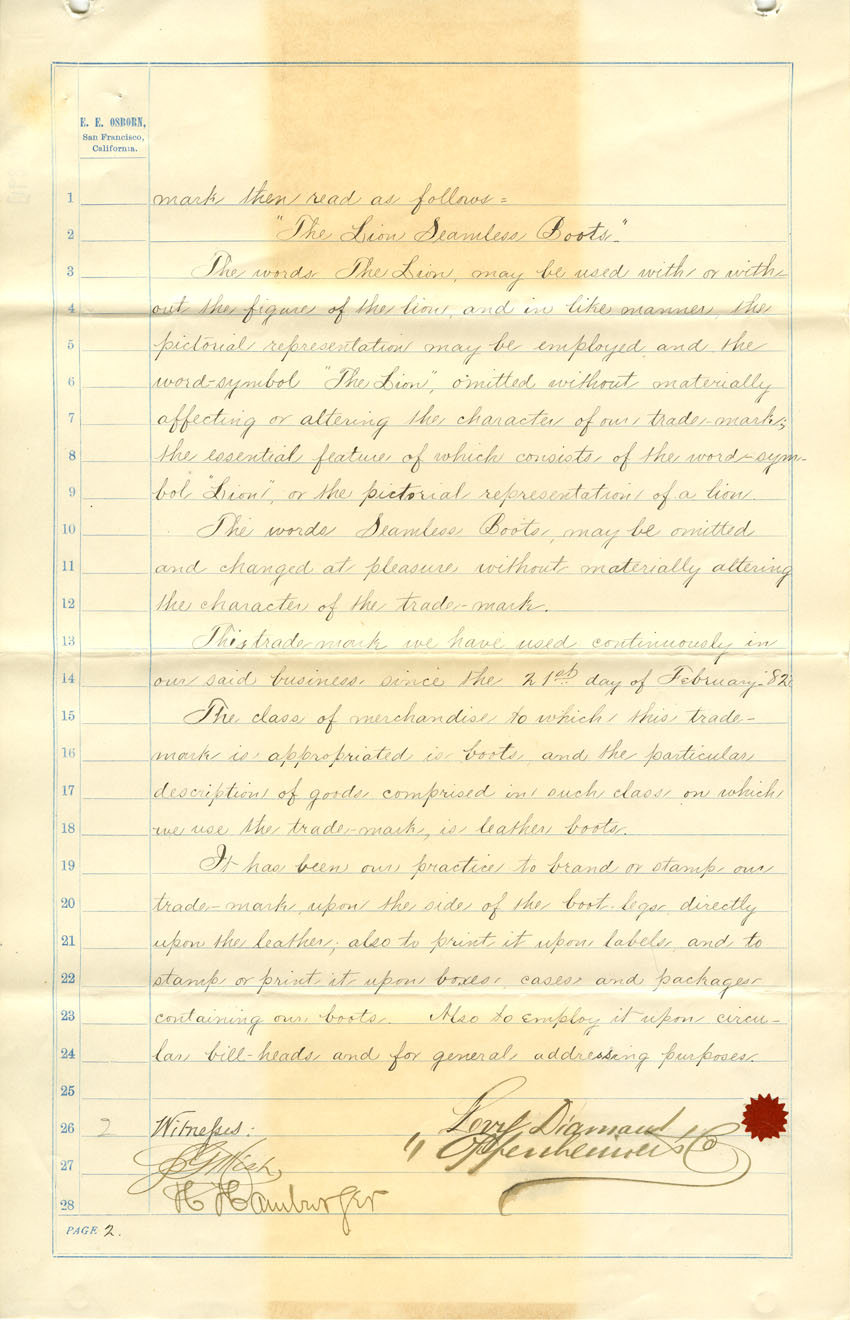 E. E. OSBORN,
San Francisco,
California.
1 mark then read as follows=
2 "The Lion Seamless Boots."
3 The words The Lion, may be used with or with-
4 out the figure of the lion, and in like manner, the
5 pictorial representation may be employed and the
6 word-symbol "The Lion", omitted without materially
7 affecting or altering the character of our trade-mark;
8 the essential feature of which consists of the word-sym-
9 bol "Lion", or the pictorial representation of a lion.
10 The words Seamless Boots, may be omitted
11 and changed at pleasure without materially altering
12 the character of the trade-mark.
13 This trade mark we have used continuously in
14 our said business since the 21st day of February '82
15 The class of merchandise to which this trade-
16 mark is appropriated is boots, and the particular
17 description of goods comprised in such class on which
18 we use the trade-mark, is leather boots.
19 It has been our practice to brand or stamp our
20 trade-mark, upon the side of the boot-legs, directly
21 upon the leather; also to print it upon labels, and to
22 stamp or print it upon boxes, cases and packages
23 containing our boots. Also to employ it upon circu-
24 lar bill-heads and for general addressing purposes.
25
26 2 Witnesses: Levy Diamant
27 Oppenheimer & Co
28 H Hamburger
PAGE 2.